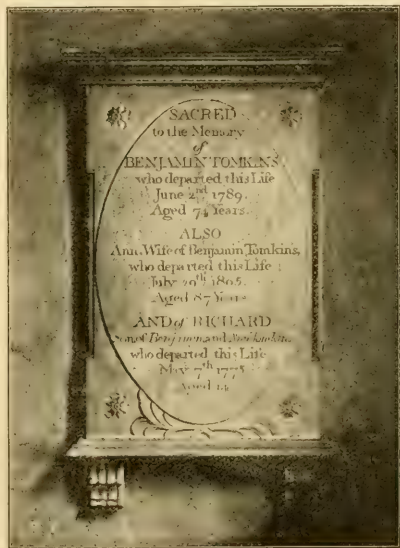 SACRED
to the Memory
of
BENJAMIN TOMKINS
who departed this Life
June 2nd 1789.
Aged 74 Years.
ALSO
Ann, Wife of Benjamin Tomkins,
who departed this Life
July 29th 1805.
Aged 87 Years
AND of RICHARD
Son of Benjamin and Ann Tomkins
who departed this Life
May 7th 1775
Aged